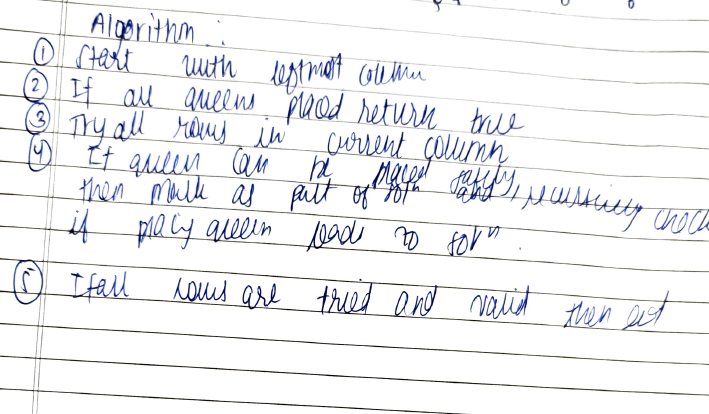 Algorithm :
① Start with leftmost column
② If all queens placed return true
③ Try all rows in current column
④ If queen can be placed safely,
then mark as part of soln and recursively check
if placy queen leads to solⁿ.
⑤ If all rows are tried and valid then exit